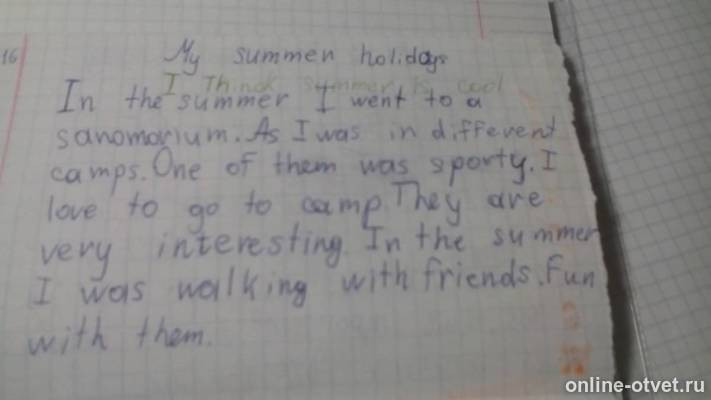 16
My summer holidays
I Think summer is cool
In the summer I went to a
sanomorium. As I was in different
camps. One of them was sporty. I
love to go to camp. They are
very interesting. In the summer
I was walking with friends. Fun
with them.
online-otvet.ru